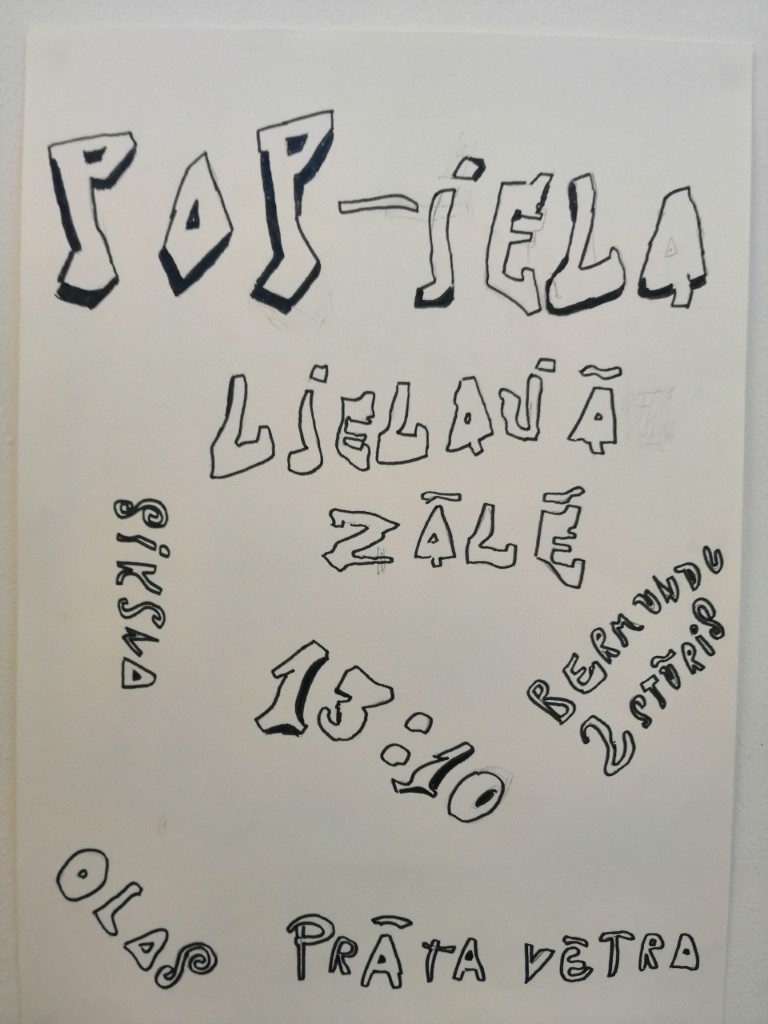 POP-iELA
LiELAJĀ
ZĀLĒ
SiKSNA
BERMUNDU
2STŪRiS
13:10
OLAS
PRĀTA VĒTRA